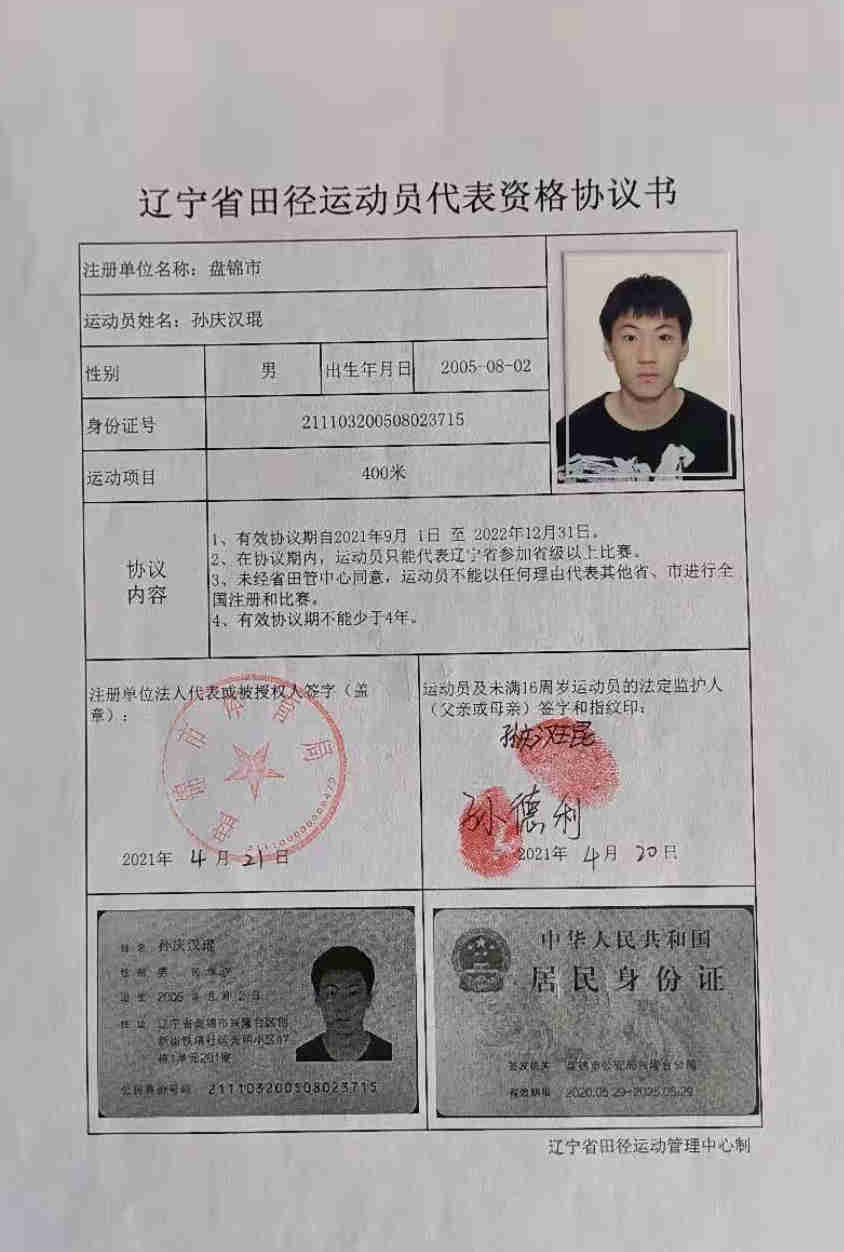 辽宁省田径运动员代表资格协议书
注册单位名称：盘锦市
运动员姓名：孙庆汉琨
性别 男 出生年月日 2005-08-02
身份证号 211103200508023715
运动项目 400米
协议
内容
1、有效协议期自2021年9月 1日 至 2022年12月31日。
2、在协议期内，运动员只能代表辽宁省参加省级以上比赛。
3、未经省田管中心同意，运动员不能以任何理由代表其他省、市进行全
国注册和比赛。
4、有效协议期不能少于4年。
注册单位法人代表或被授权人签字（盖
章）：
盘锦市体育局
2021年 4月 21日
运动员及未满16周岁运动员的法定监护人
（父亲或母亲）签字和指纹印：
孙庆汉琨
孙德利
2021年 4月 20日
姓名 孙庆汉琨
性别 男 民族 汉
出生 2005 年 8 月 2 日
住址 辽宁省盘锦市兴隆台区创
楼1单元201室
公民身份号码 211103200508023715
中华人民共和国
居民身份证
签发机关 盘锦市公安局兴隆台分局
有效期限 2020.05.29-2025.05.29
辽宁省田径运动管理中心制